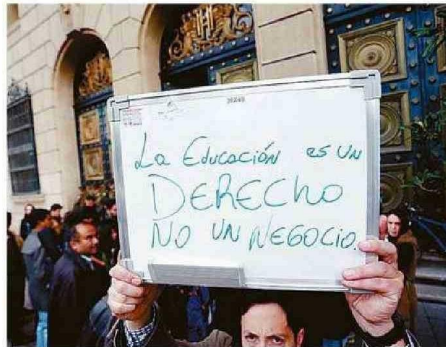 La Educación es un
DERECHO
NO UN NEGOCIO.